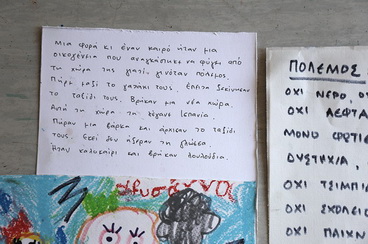 Μια φορα κι έναν καιρό ήταν μια
οικογένεια που αναγκάστηκε να φύγει από
τη χώρα της γιατί γινόταν πόλεμος.
Πήρε μαζί το γατάκι τους. Έπειτα ξεκίνησαν
το ταξίδι τους. Βρήκαν μια νέα χώρα.
Αυτή τη χώρα τη λέγανε Ισπανία.
Πήραν μια βάρκα και άρχισαν το ταξίδι
τους. Εκεί δεν ήξεραν τη γλώσσα.
Ήταν καλοκαίρι και βρήκαν λουλούδια.
ΠΟΛΕΜΟΣ
ΟΧΙ ΝΕΡΟ,
ΟΧΙ ΛΕΦΤΑ
ΜΟΝΟ ΦΩΤΙΕ
ΔΥΣΤΥΧΙΑ,
ΟΧΙ ΤΣΙΜΠΙ
ΟΧΙ ΣΧΟΛΕΙΟ
ΟΧΙ ΠΑΙΧΝ